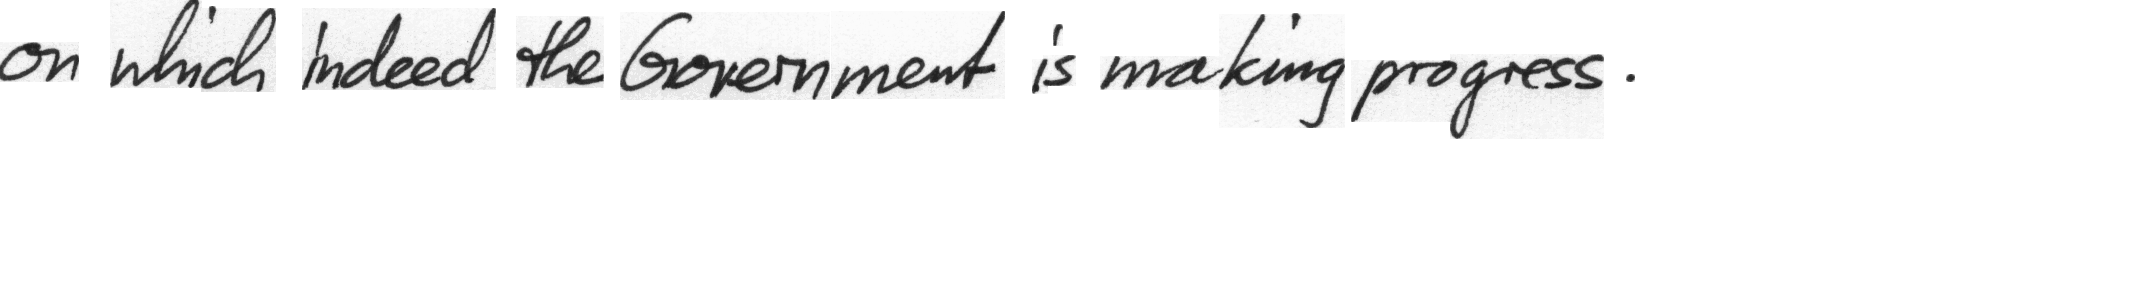 on which indeed the Government is making progress.